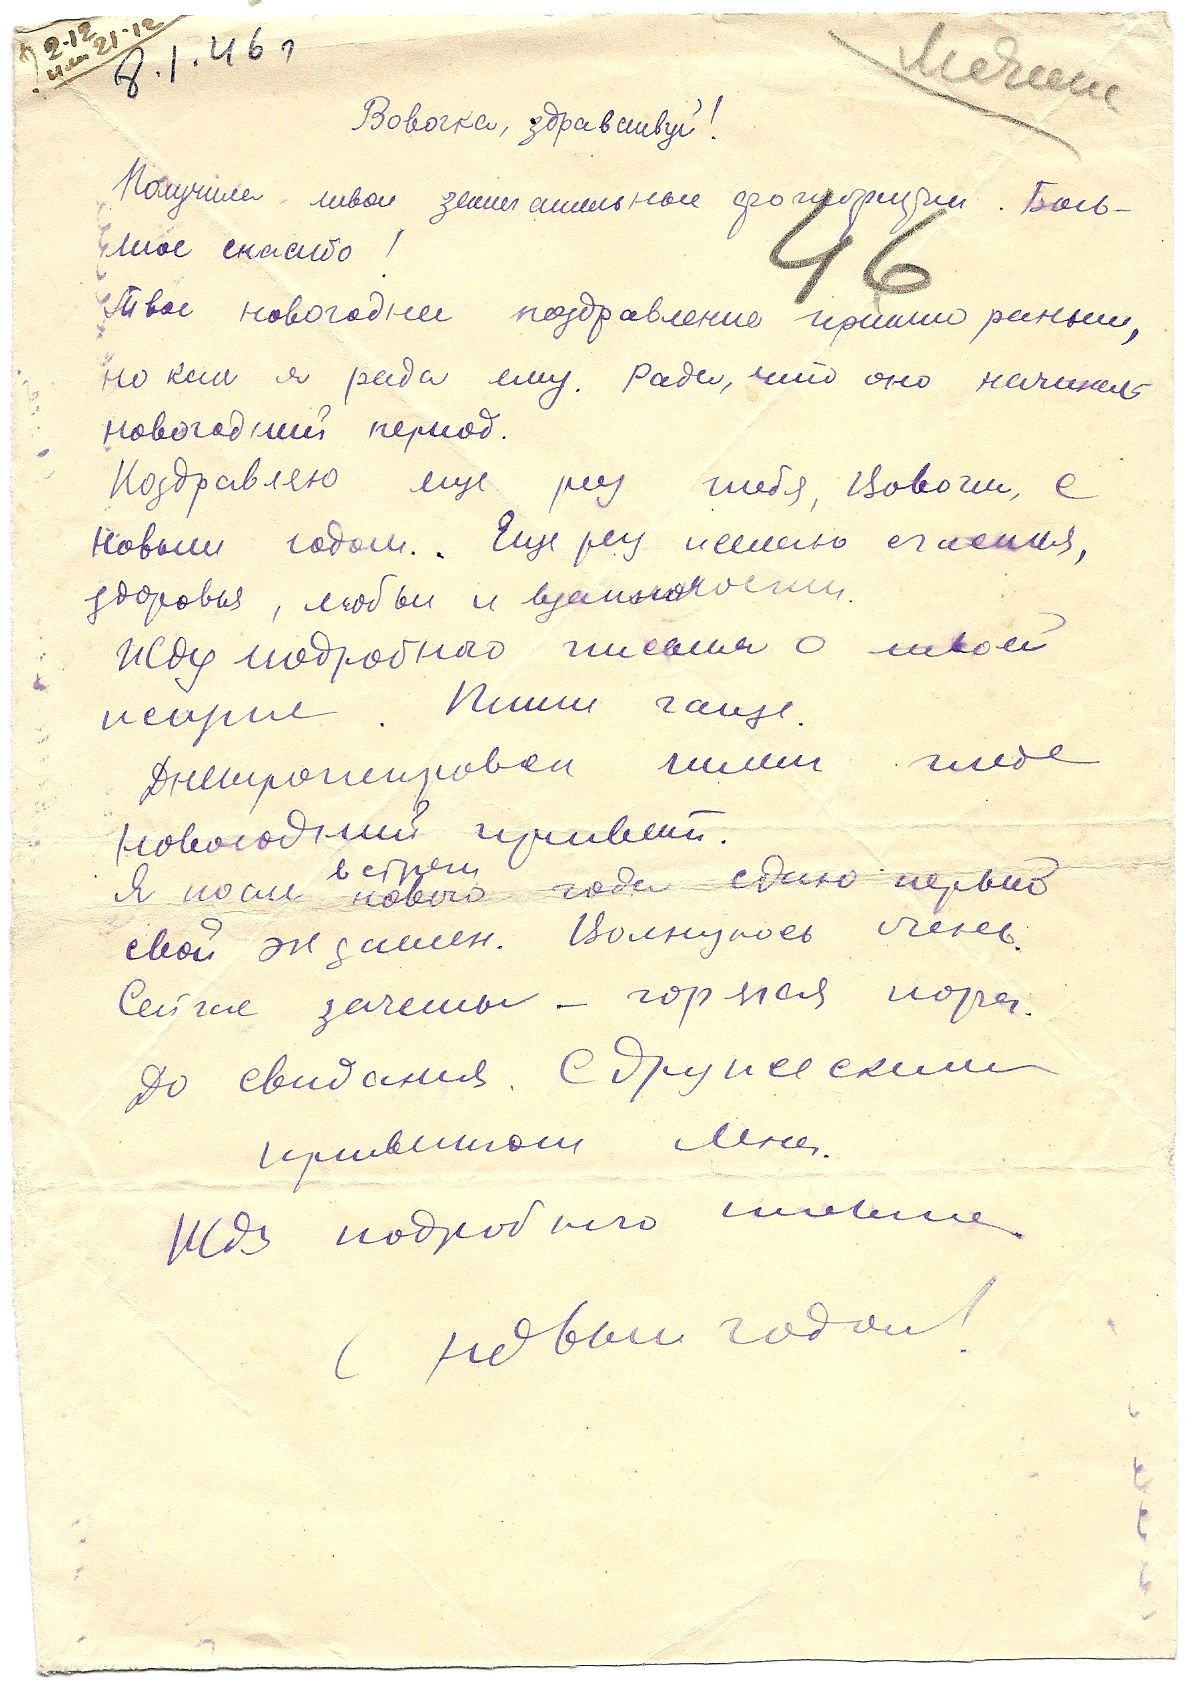 2-12
или 21-12
8.1.46 г
Вовочка, здравствуй!
Получила твои замечательные фотографии. Боль-
шое спасибо!
46
Твое новогоднее поздравление пришло раньше,
но как я рада ему. Рада, что оно начинает
новогодний период.
Поздравляю еще раз тебя, Вовочка, с
новым годом.. Еще раз желаю счастья,
здоровья, любви и взаимности.
Жду подробного письма о твоей
жизни. Пиши чаще.
Днепропетровск шлет тебе
новогодний привет.
Я после встречи нового года сдаю первый
свой экзамен. Волнуюсь очень.
Сейчас зачеты – горячая пора.
До свидания. С дружеским
приветом Лена.
Жду подробного письма.
С новым годом!